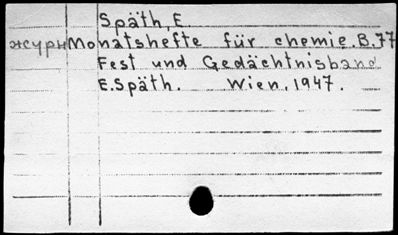 Späth, E
журн Monatshefte für chemie. B.77
Fest und Gedächtnisband
E.Späth. Wien, 1947.